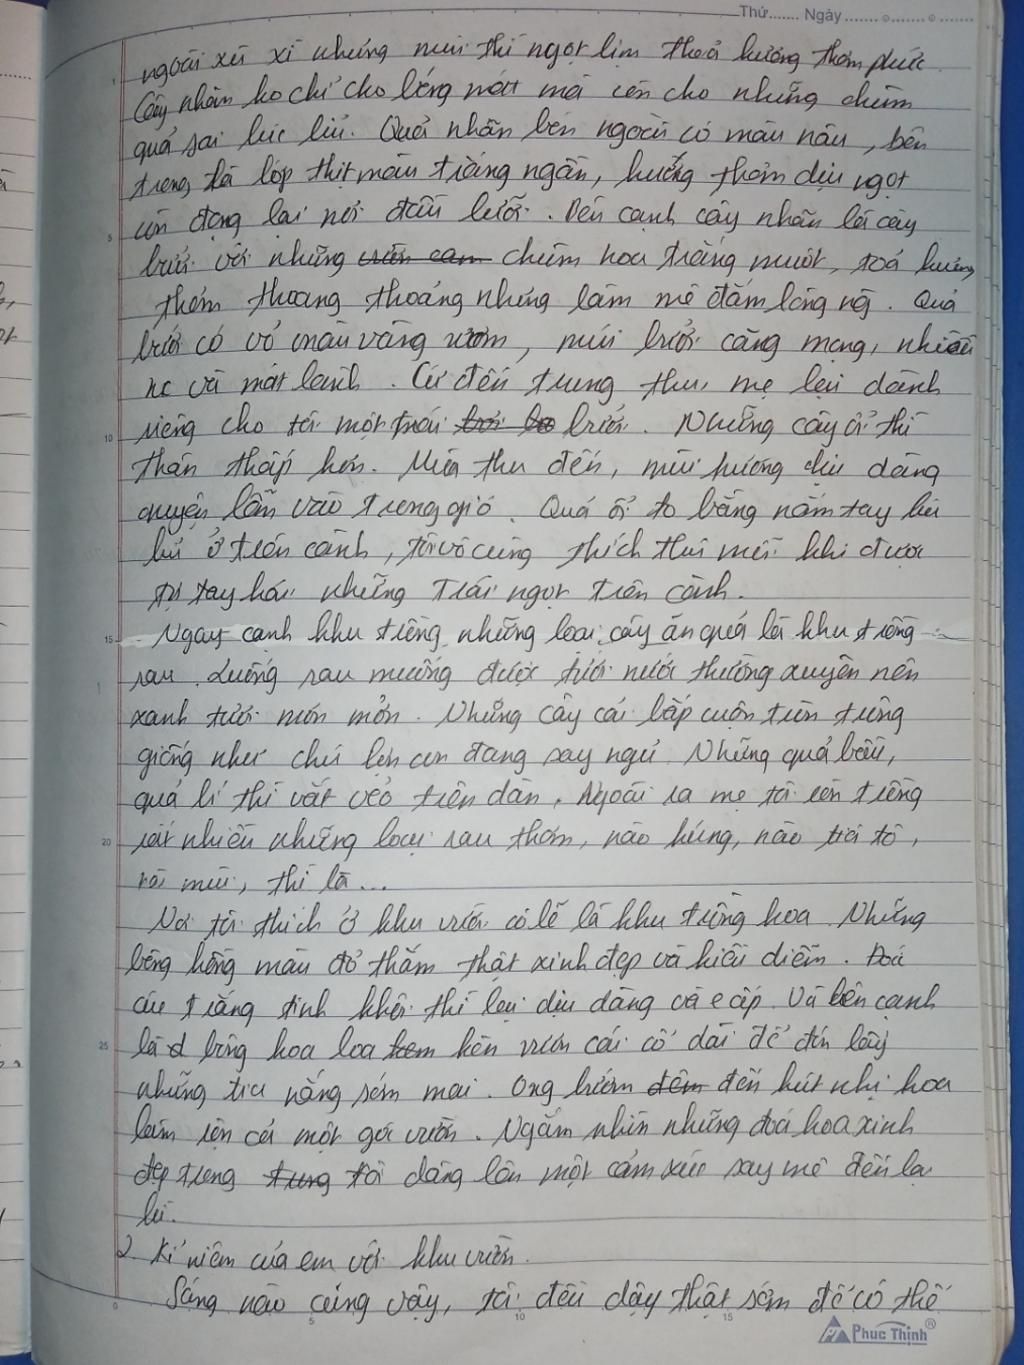 Thứ....... Ngày ....... ....... .......
ngoài xù xì nhưng múi thì ngọt lịm thoả hương thơm phức.
Cây nhãn ko chỉ cho bóng mát mà còn cho những chùm
quả sai lúc lỉu. Quả nhãn bên ngoài có màu nâu, bên
trong là lớp thịt màu trắng ngần, hương thơm dịu ngọt
còn đọng lại nơi đầu lưỡi. Bên cạnh cây nhãn là cây
bưởi với những chùm hoa trắng muốt, toả hương
thơm thoang thoảng nhưng làm mê đắm lòng ng. Quả
bưởi có vỏ màu vàng ươm, múi bưởi căng mọng, nhiều
nc và mát lành. Cứ đến trung thu, mẹ lại dành
riêng cho tôi một trái bưởi. Những cây ổi thì
thân thấp hơn. Mùa thu đến, mùi hương dịu dàng
quyện lẫn vào trong gió. Quả ổi to bằng nắm tay lúc
lỉu ở trên cành, tôi vô cùng thích thú mỗi khi được
tự tay hái những trái ngọt trên cành.
Ngay cạnh khu trồng những loại cây ăn quả là khu trồng
rau. Luống rau muống được tưới nước thường xuyên nên
xanh tươi mơn mởn. Những cây cải bắp cuộn tròn trông
giống như chú lợn con đang say ngủ. Những quả bầu,
quả bí thì vắt vẻo trên dàn. Ngoài ra mẹ tôi còn trồng
rất nhiều những loại rau thơm, nào húng, nào tía tô,
rau mùi, thì là...
Nơi tôi thích ở khu vườn có lẽ là khu trồng hoa. Những
bông hồng màu đỏ thắm thật xinh đẹp và kiều diễm. Đoá
cúc trắng tinh khôi thì lại dịu dàng và e ấp. Và bên cạnh
là bông hoa loa kèn vươn cái cổ dài để đón lấy
những tia nắng sớm mai. Ong bướm đến hút nhị hoa
làm rộn cả một góc vườn. Ngắm nhìn những đoá hoa xinh
đẹp trong tôi dâng lên một cảm xúc say mê đến lạ
kì.
2. Kỉ niệm của em với khu vườn.
Sáng nào cũng vậy, tôi đều dậy thật sớm để có thể
Phuc Thịnh®